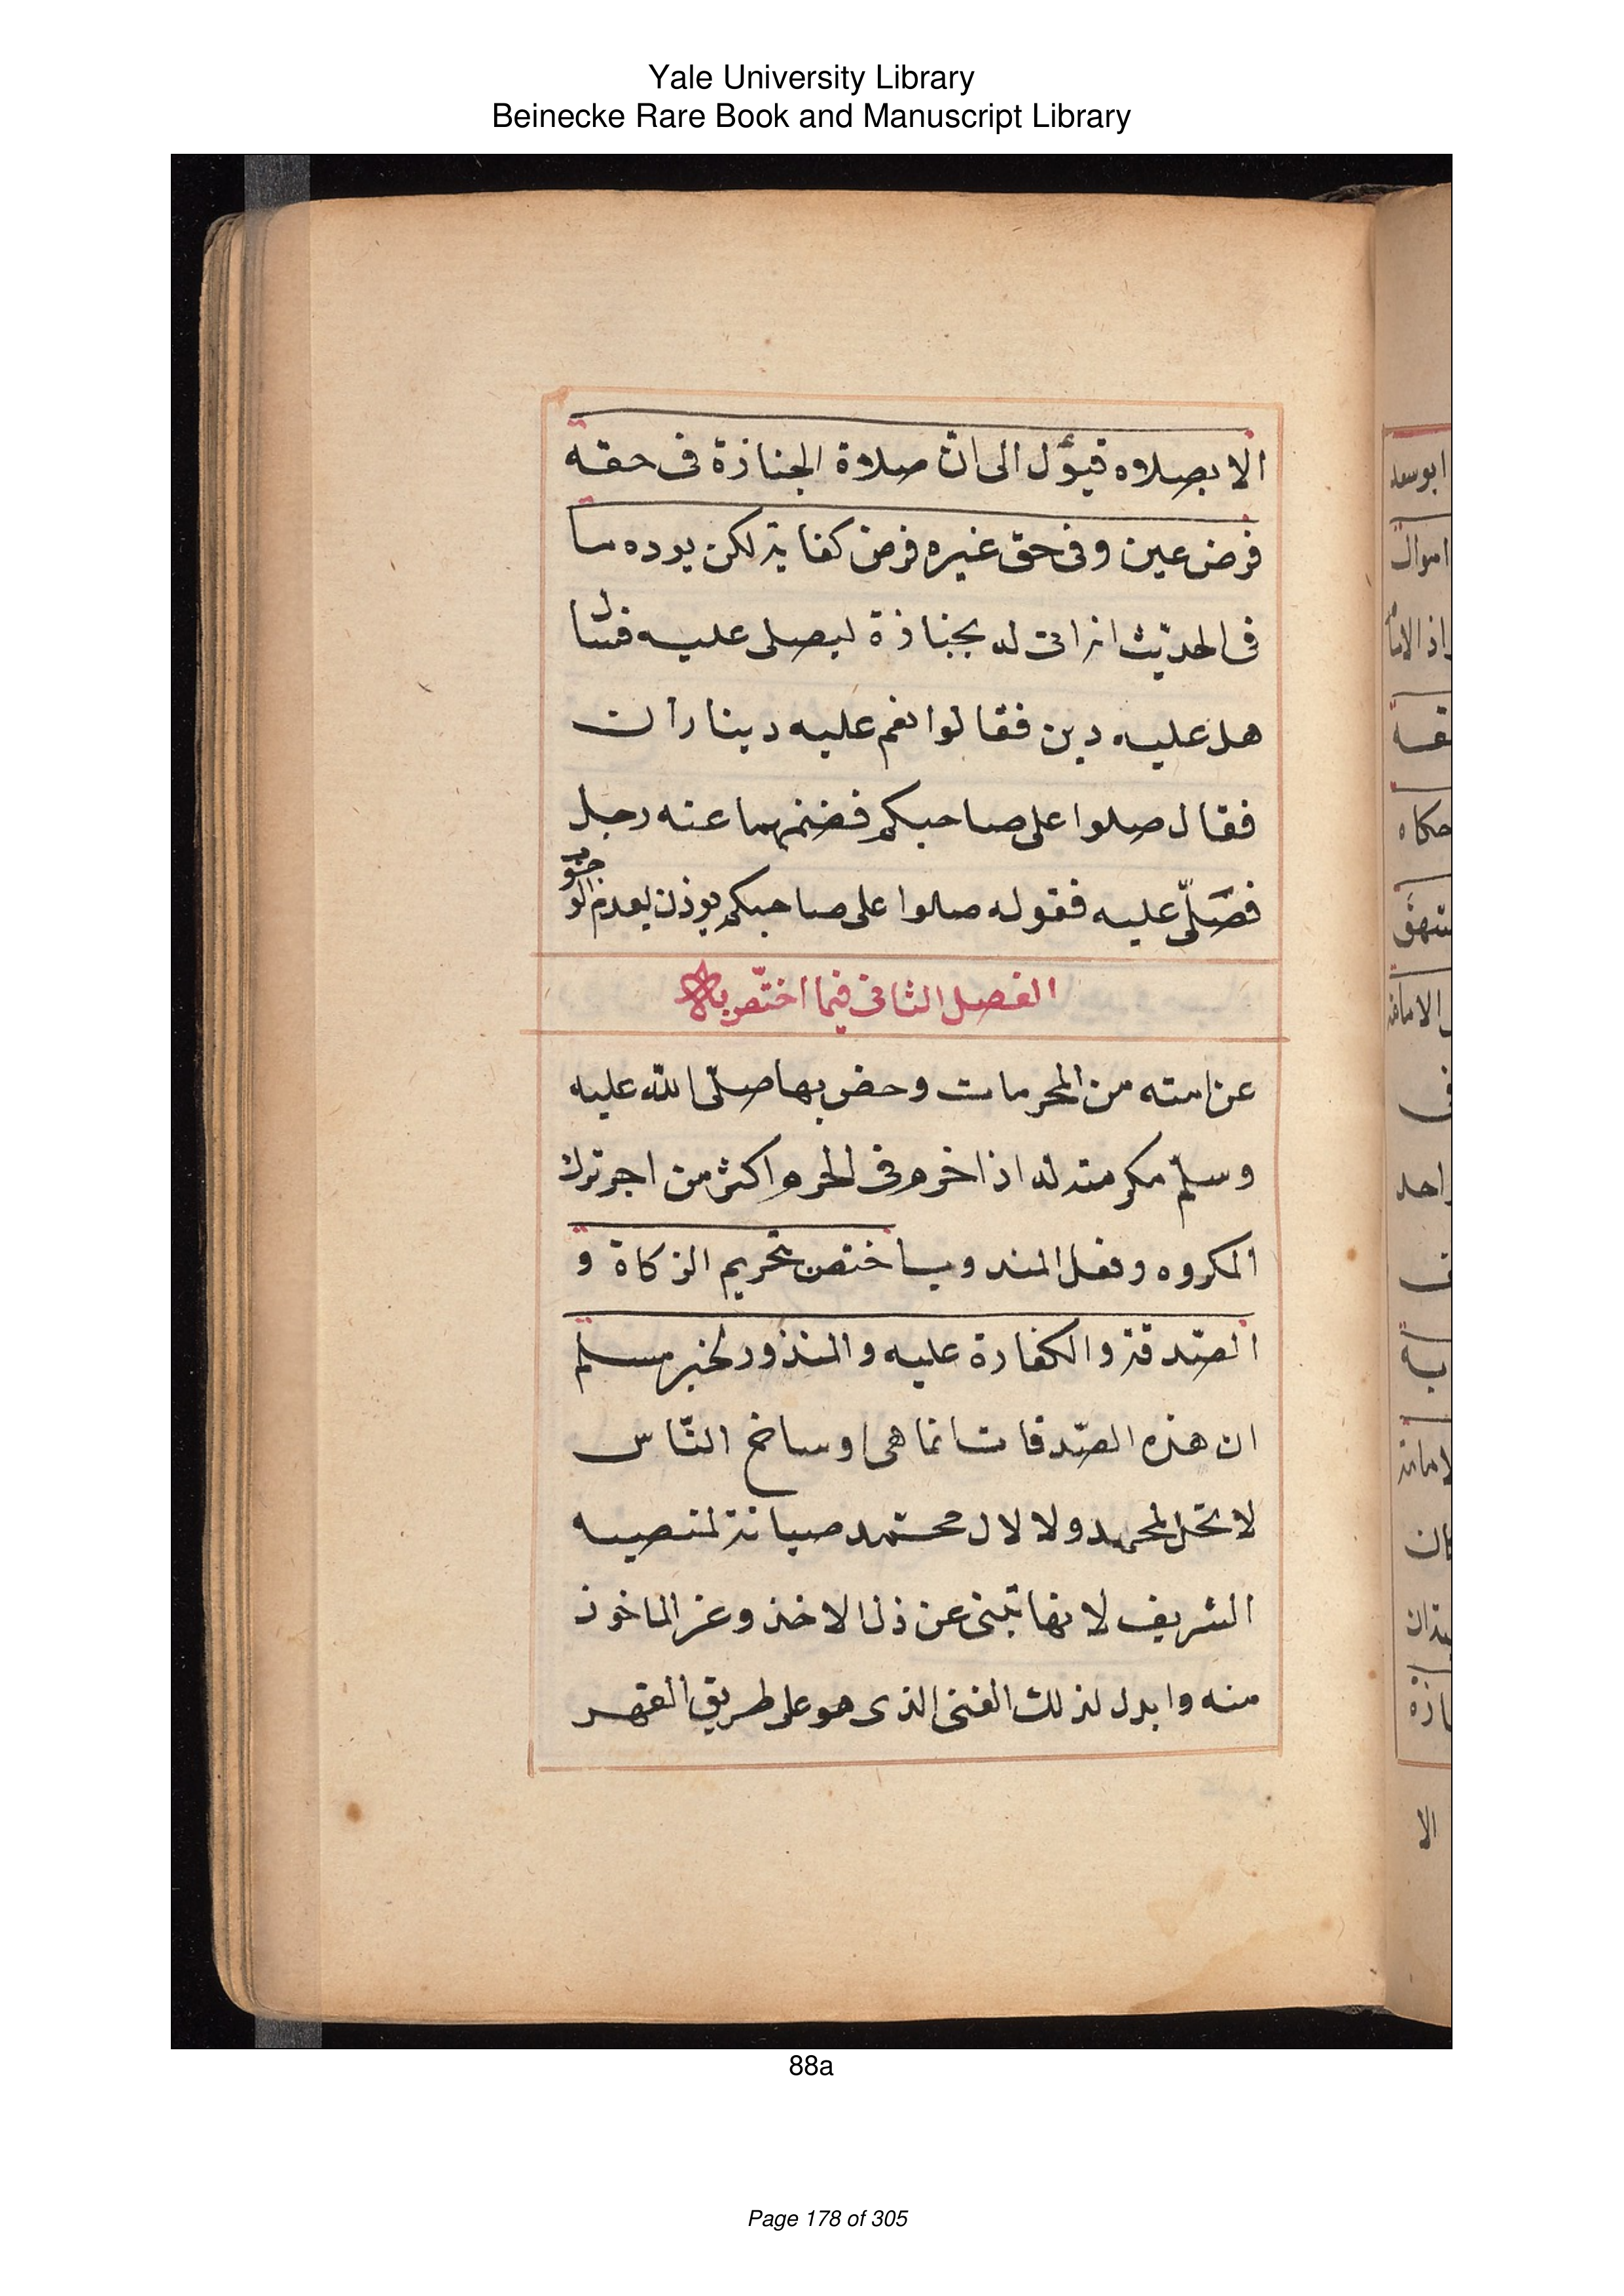 Yale University Library
Beinecke Rare Book and Manuscript Library
الا بصلاه فيؤل الى ان صلاة الجنازة فى حقه
فرض عين وفى حق غيره فرض كفاية لكن يرده ما
فى الحديث انه اتى له بجنازة ليصلى عليه فسأل
هل عليه دين فقالوا نعم عليه ديناران
فقال صلوا على صاحبكم فضمنهما عنه رجل
فصلّى عليه فقوله صلوا على صاحبكم يوذن بعدم الوجوب
الفصل الثانى فيما اختصّ به
عن امته من المحرمات وخص بها صلّى الله عليه
وسلّم مكرمة له اذ اجر فى اكثر من اجر ترك
المكروه وفعل المندوب اختص بتحريم الزكاة و
الصّدقة والكفارة عليه والمنذور لخبر مسلم
ان هذه الصّدقات انما هى اوساخ النّاس
لا تحل لمحمد ولا لال محمد صيانة لمنصبه
الشريف لانها تبنى عن ذل الاخذ وعز الماخوذ
منه وابدل لذلك الفئ الذى هو على طريق القهر
ابوسعد
اموال
الا
88a
Page 178 of 305